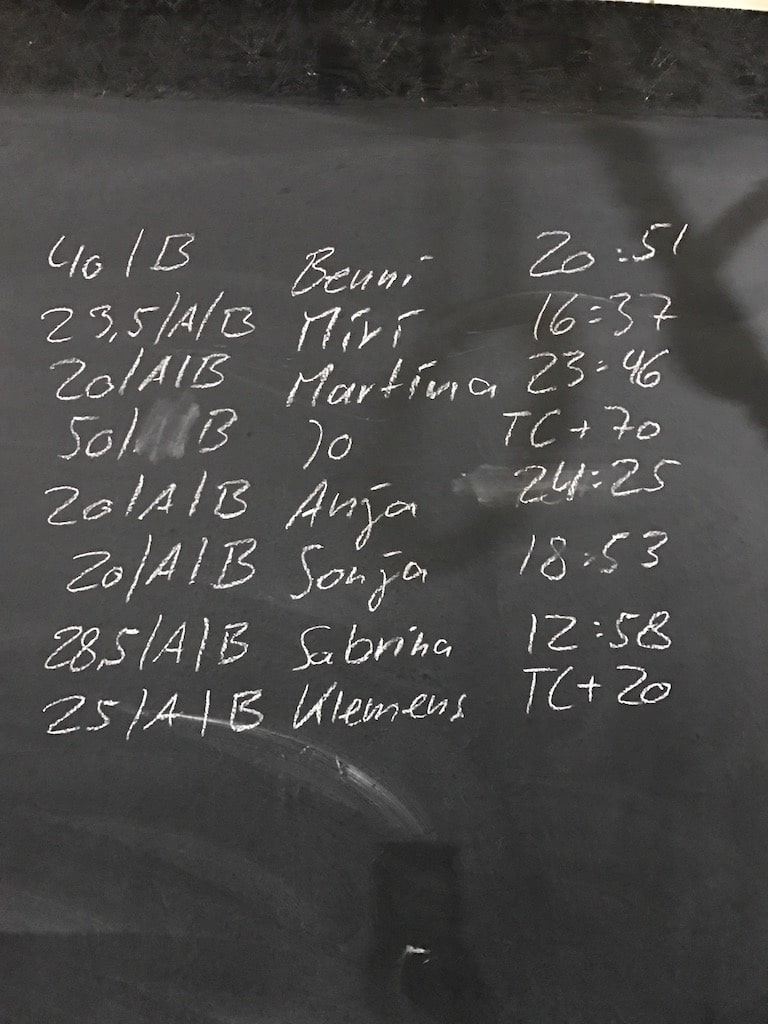 40/B Benni 20:51
23,5/A/B Miri 16:37
20/A/B Martina 23:46
50/ B Jo TC+70
20/A/B Anja 24:25
20/A/B Sonja 18:53
28,5/A/B Sabrina 12:58
25/A/B Klemens TC+20